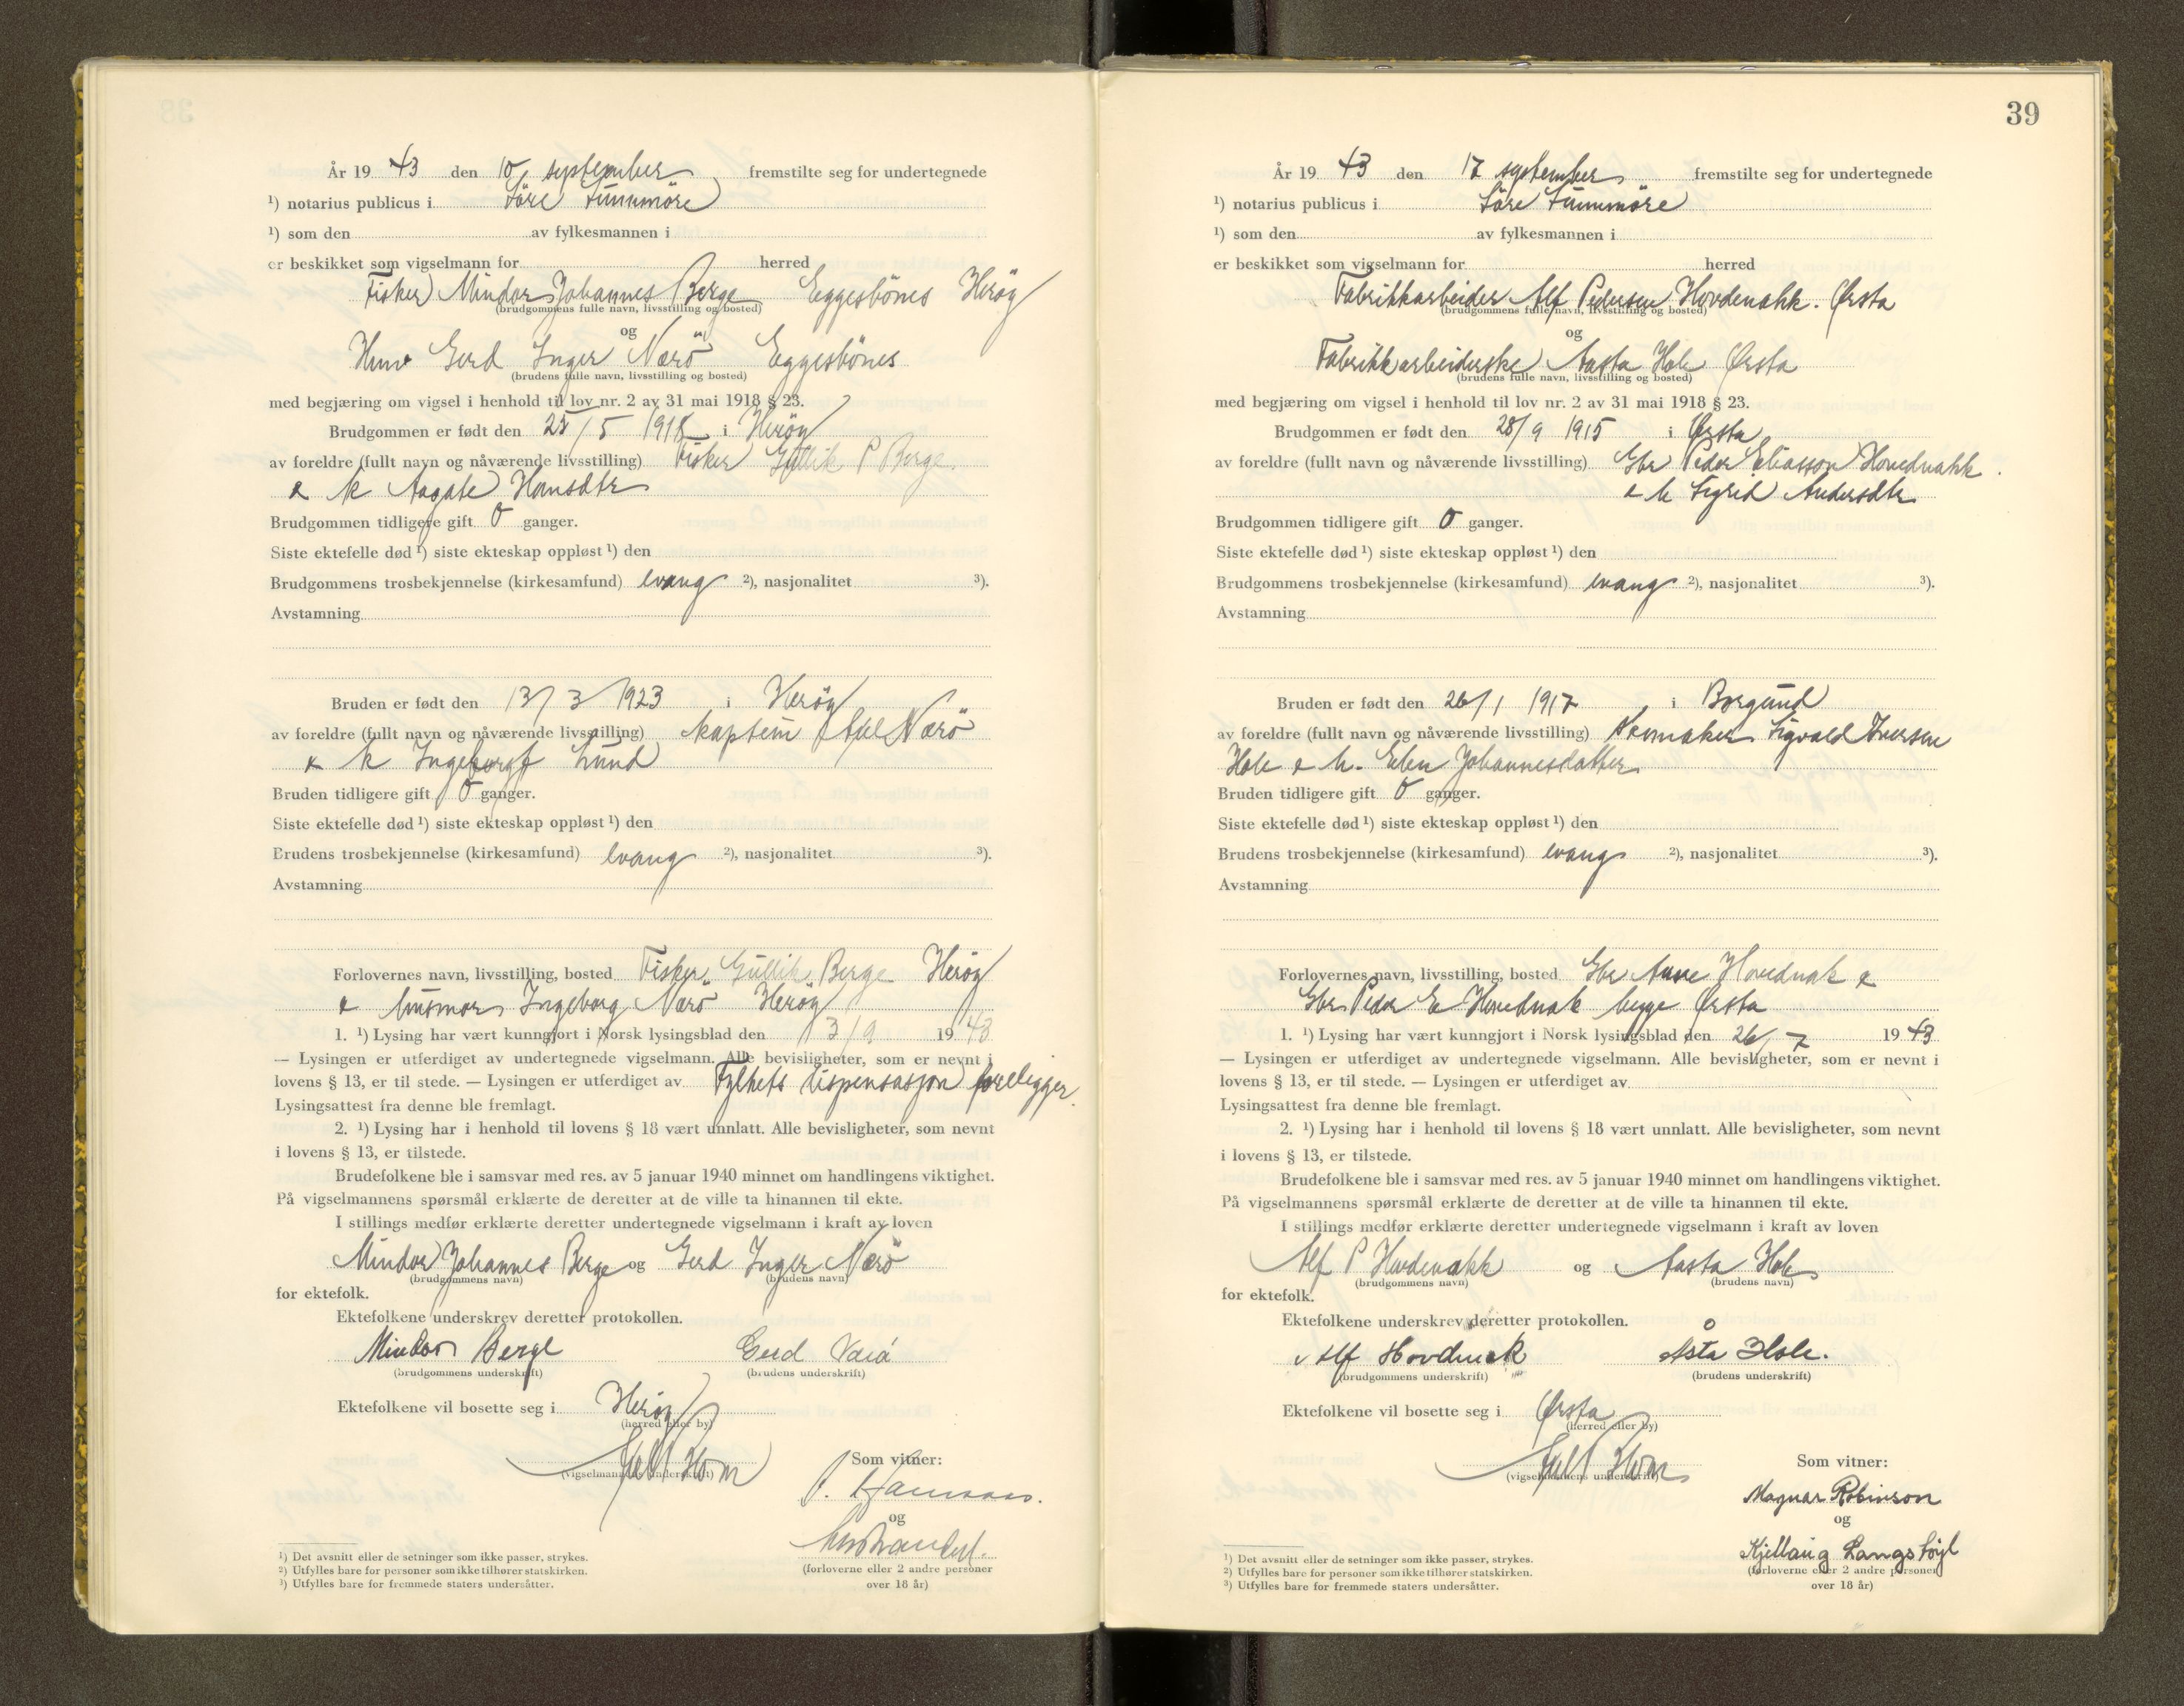 År 19 43 den 10 september fremstilte seg for undertegnede
¹) notarius publicus i Söre Sunnmöre
¹) som den av fylkesmannen i
er beskikket som vigselmann for herred
Fisker Mindor Johannes Berge Eggesbönes Heröy
(brudgommens fulle navn, livsstilling og bosted)
og
Gerd Inger Nærö Eggesbönes
(brudens fulle navn, livsstilling og bosted)
med begjæring om vigsel i henhold til lov nr. 2 av 31 mai 1918 § 23.
Brudgommen er født den /5 1918 i Heröy
av foreldre (fullt navn og nåværende livsstilling) Fisker Gullik P Berge
& k Aagate Hansdtr
Brudgommen tidligere gift 0 ganger.
Siste ektefelle død ¹) siste ekteskap oppløst ¹) den
Brudgommens trosbekjennelse (kirkesamfund) evang ²), nasjonalitet ³).
Avstamning
Bruden er født den 13/3 1923 i Heröy
av foreldre (fullt navn og nåværende livsstilling) kaptein Nærö
& k Ingeborg Lund
Bruden tidligere gift 0 ganger.
Siste ektefelle død ¹) siste ekteskap oppløst ¹) den
Brudens trosbekjennelse (kirkesamfund) evang ²), nasjonalitet ³).
Avstamning
Forlovernes navn, livsstilling, bosted Fisker Gullik Berge Heröy
& husmor Ingeborg Nærö Heröy
1. ¹) Lysing har vært kunngjort i Norsk lysingsblad den 3/9 1943
— Lysingen er utferdiget av undertegnede vigselmann. Alle bevisligheter, som er nevnt i
lovens § 13, er til stede. — Lysingen er utferdiget av Fylkets dispensasjon foreligger.
Lysingsattest fra denne ble fremlagt.
2. ¹) Lysing har i henhold til lovens § 18 vært unnlatt. Alle bevisligheter, som nevnt
i lovens § 13, er tilstede.
Brudefolkene ble i samsvar med res. av 5 januar 1940 minnet om handlingens viktighet.
På vigselmannens spørsmål erklærte de deretter at de ville ta hinannen til ekte.
I stillings medfør erklærte deretter undertegnede vigselmann i kraft av loven
Mindor Johannes Berge og Gerd Inger Nærö
(brudgommens navn) (brudens navn)
for ektefolk.
Ektefolkene underskrev deretter protokollen.
Mindor Berge Gerd Nærö
(brudgommens underskrift) (brudens underskrift)
Ektefolkene vil bosette seg i Heröy
(herred eller by)
(vigselmannens underskrift)
Som vitner:
og
(forloverne eller 2 andre personer
over 18 år)
¹) Det avsnitt eller de setninger som ikke passer, strykes.
²) Utfylles bare for personer som ikke tilhører statskirken.
³) Utfylles bare for fremmede staters undersåtter.
39
År 19 43 den 17 september fremstilte seg for undertegnede
¹) notarius publicus i Söre Sunnmöre
¹) som den av fylkesmannen i
er beskikket som vigselmann for herred
Fabrikkarbeider Alf Pedersen Hovdenakk. Ørsta
(brudgommens fulle navn, livsstilling og bosted)
og
Fabrikkarbeiderske Aasta Hole Ørsta
(brudens fulle navn, livsstilling og bosted)
med begjæring om vigsel i henhold til lov nr. 2 av 31 mai 1918 § 23.
Brudgommen er født den 28/9 1915 i Ørsta
av foreldre (fullt navn og nåværende livsstilling) Gbr Peder Eliasson Hovednakk.
& h Sigrid Andersdtr
Brudgommen tidligere gift 0 ganger.
Siste ektefelle død ¹) siste ekteskap oppløst ¹) den
Brudgommens trosbekjennelse (kirkesamfund) evang ²), nasjonalitet ³).
Avstamning
Bruden er født den 26/1 1917 i Borgund
av foreldre (fullt navn og nåværende livsstilling) Skomaker Sigvald Iversen
Hole & h. Elen Johannesdatter
Bruden tidligere gift 0 ganger.
Siste ektefelle død ¹) siste ekteskap oppløst ¹) den
Brudens trosbekjennelse (kirkesamfund) evang ²), nasjonalitet ³).
Avstamning
Forlovernes navn, livsstilling, bosted Gbr Hovednak &
Gbr Peder E Hovednak begge Ørsta
1. ¹) Lysing har vært kunngjort i Norsk lysingsblad den 26/7 1943
— Lysingen er utferdiget av undertegnede vigselmann. Alle bevisligheter, som er nevnt i
lovens § 13, er til stede. — Lysingen er utferdiget av
Lysingsattest fra denne ble fremlagt.
2. ¹) Lysing har i henhold til lovens § 18 vært unnlatt. Alle bevisligheter, som nevnt
i lovens § 13, er tilstede.
Brudefolkene ble i samsvar med res. av 5 januar 1940 minnet om handlingens viktighet.
På vigselmannens spørsmål erklærte de deretter at de ville ta hinannen til ekte.
I stillings medfør erklærte deretter undertegnede vigselmann i kraft av loven
Alf P Hovdenakk og Aasta Hole
(brudgommens navn) (brudens navn)
for ektefolk.
Ektefolkene underskrev deretter protokollen.
Alf Hovdenak Åsta Hole.
(brudgommens underskrift) (brudens underskrift)
Ektefolkene vil bosette seg i Ørsta
(herred eller by)
(vigselmannens underskrift)
Som vitner:
Magnar Robinson
og
Kjellaug Langshöyl
(forloverne eller 2 andre personer
over 18 år)
¹) Det avsnitt eller de setninger som ikke passer, strykes.
²) Utfylles bare for personer som ikke tilhører statskirken.
³) Utfylles bare for fremmede staters undersåtter.